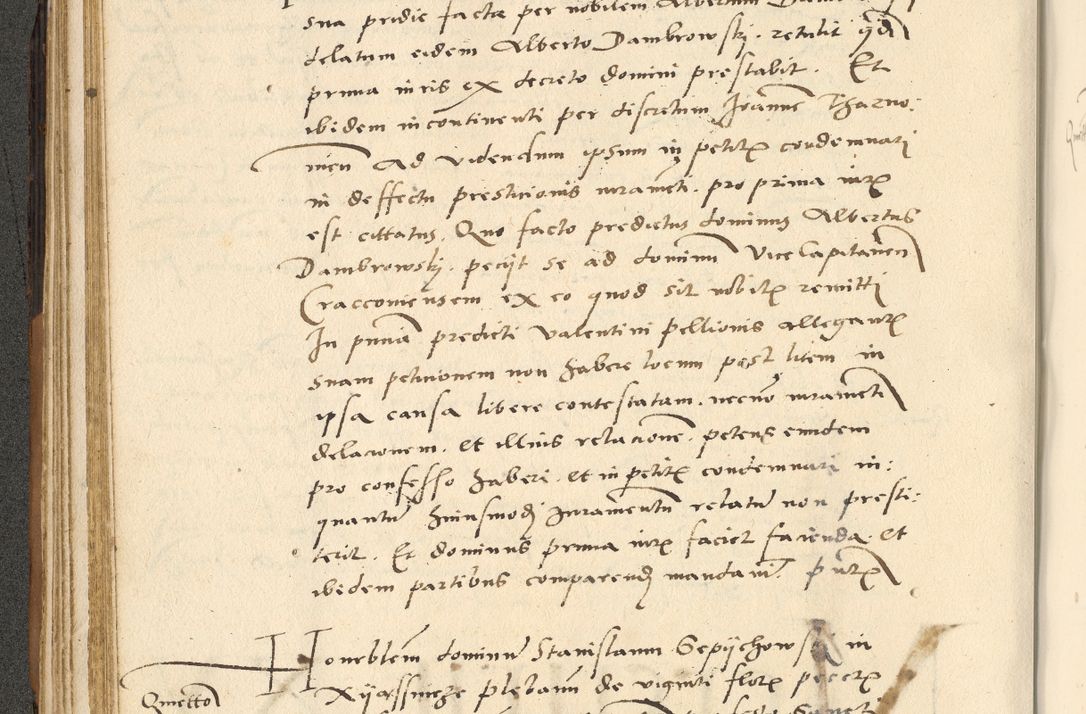 sua pridie facta per nobilem Albertum
delatum eidem Alberto Dambrowskj. retulit qd
prima iuris ex decreto domini prestabit. Et
ibidem incontinenti per discretum Joannē Tharno-
meū Ad videndum ipsum in petitis condemnari
in deffectu prestitionis iuramēti. pro prima iuris
est cittatus. Quo facto predictus dominus Albertus
Dambrowskj. pecijt se ad dominū Vicecapitaneū
Cracconiensem ex eo quod sit nobilis remitti
In pñtia predicti Valentini pellionis allegantis
suam petitionem non habere locum post litem in
ipsa causa libere contestatam. necnō iuramēti
delationem. et illius relationē. petens eundem
pro confesso haberi. et in petitis condemnari in:
quantū huiusmodj iuramentū relatū non presti:
terit. Et dominus prima iuris faciet facienda. et
ibidem partibus comparendj mandavit.
Honorblem dominū Stanislaum Gepijchowskj in
Xijassnicze plebanū de viginti florenis peccuniae